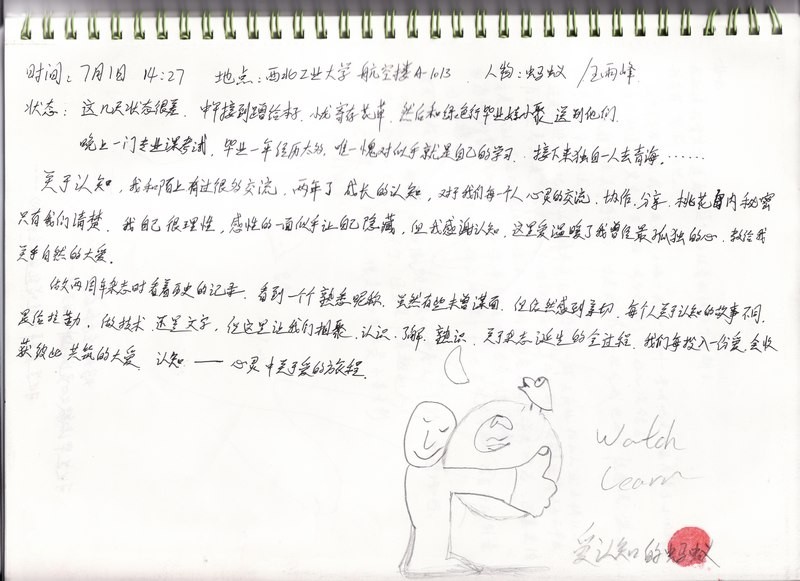 时间：7月1日 14:27 地点：西北工业大学 航空楼A-1013 人物：蚂蚁 /
状态：这几天状态很差. 中午接到 给 . 小龙寄存花草. 然后和绿色行毕业娃小聚 送别他们.
晚上一门专业课考试. 毕业一年经历太多. 唯一愧对似乎就是自己的学习. 接下来独自一人去青海. ……
关于认知，我和陌上有过很多交流. 两年了 成长的认知，对于我们每一个人 心灵的交流. 协作. 分享. 桃花 内秘密
只有我们清楚. 我自己很理性，感性的一面似乎让自己隐藏，但我感谢认知. 这里爱温暖了我曾经最孤独的心. 教给我
关乎自然的大爱.
做两周年杂志时看着历史的记录. 看到一个个熟悉昵称. 虽然有些未曾谋面. 但依然感到亲切. 每个人关于认知的故事不同.
是给拉勤. 做技术. 还是文字，但这里让我们相聚. 认识. 了解. 熟识. 关于杂志诞生的全过程. 我们每投入一份爱. 会收
获彼此共筑的大爱. 认知 —— 心灵中关于爱的旅程.
Watch
Learn
爱认知的蚂蚁